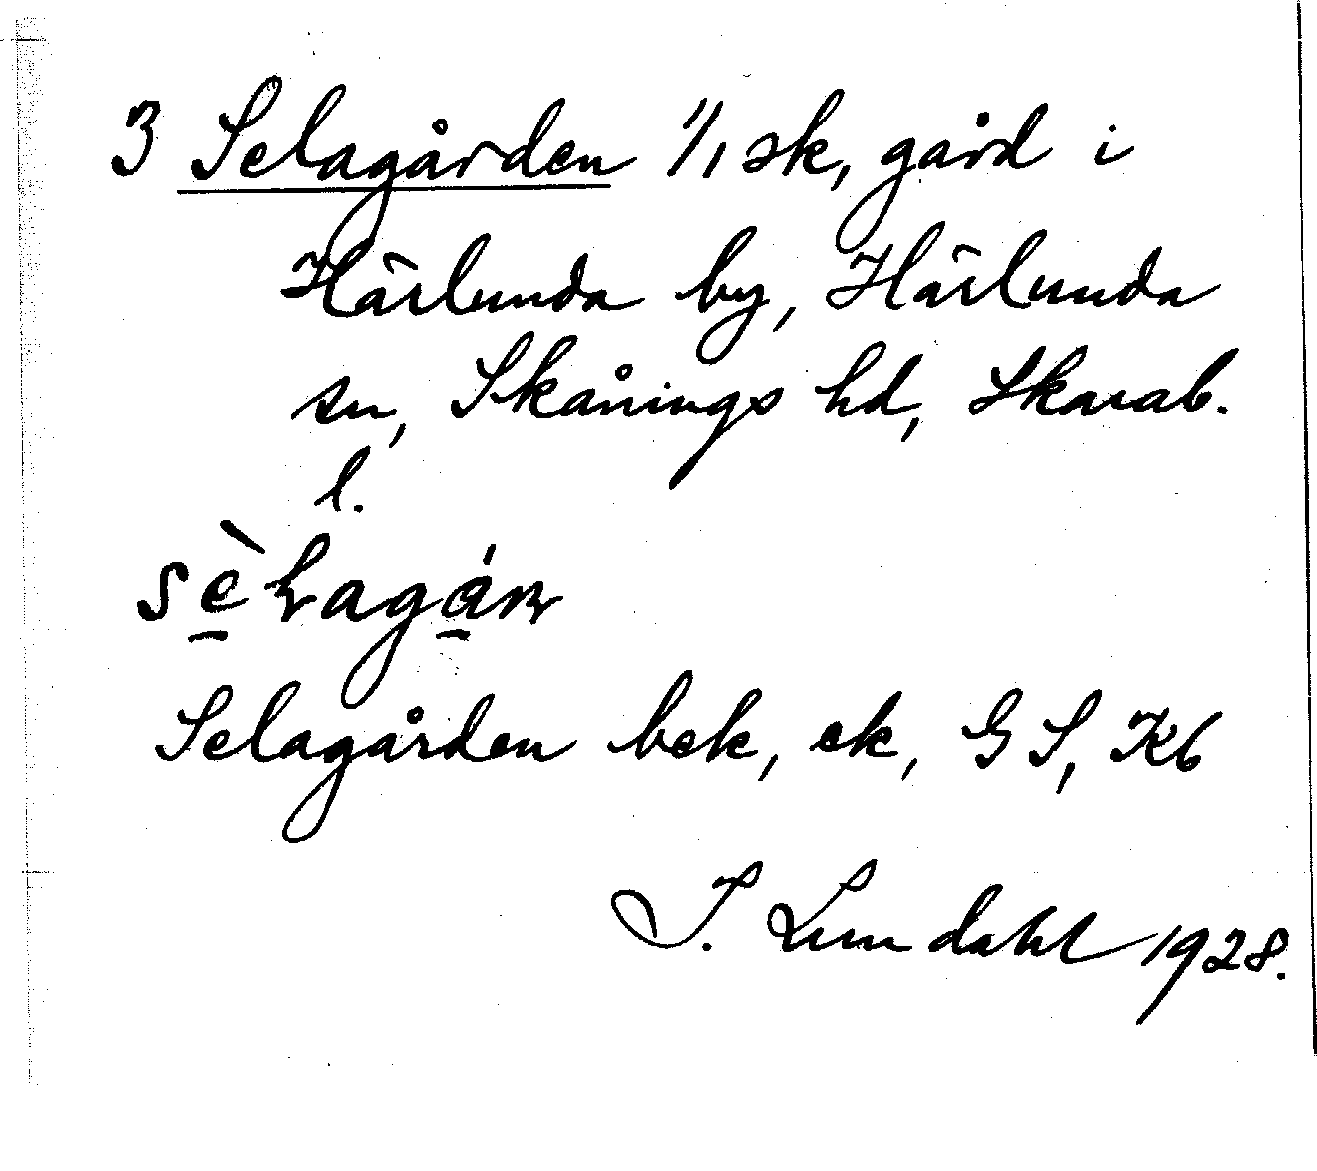 3 Selagården 1/1 sk, gård i
Härlunda by, Härlunda
sn, Skånings hd, Skarab.
l.
Selagården bek, ek, GS, Kb
I. Lundahl 1928.